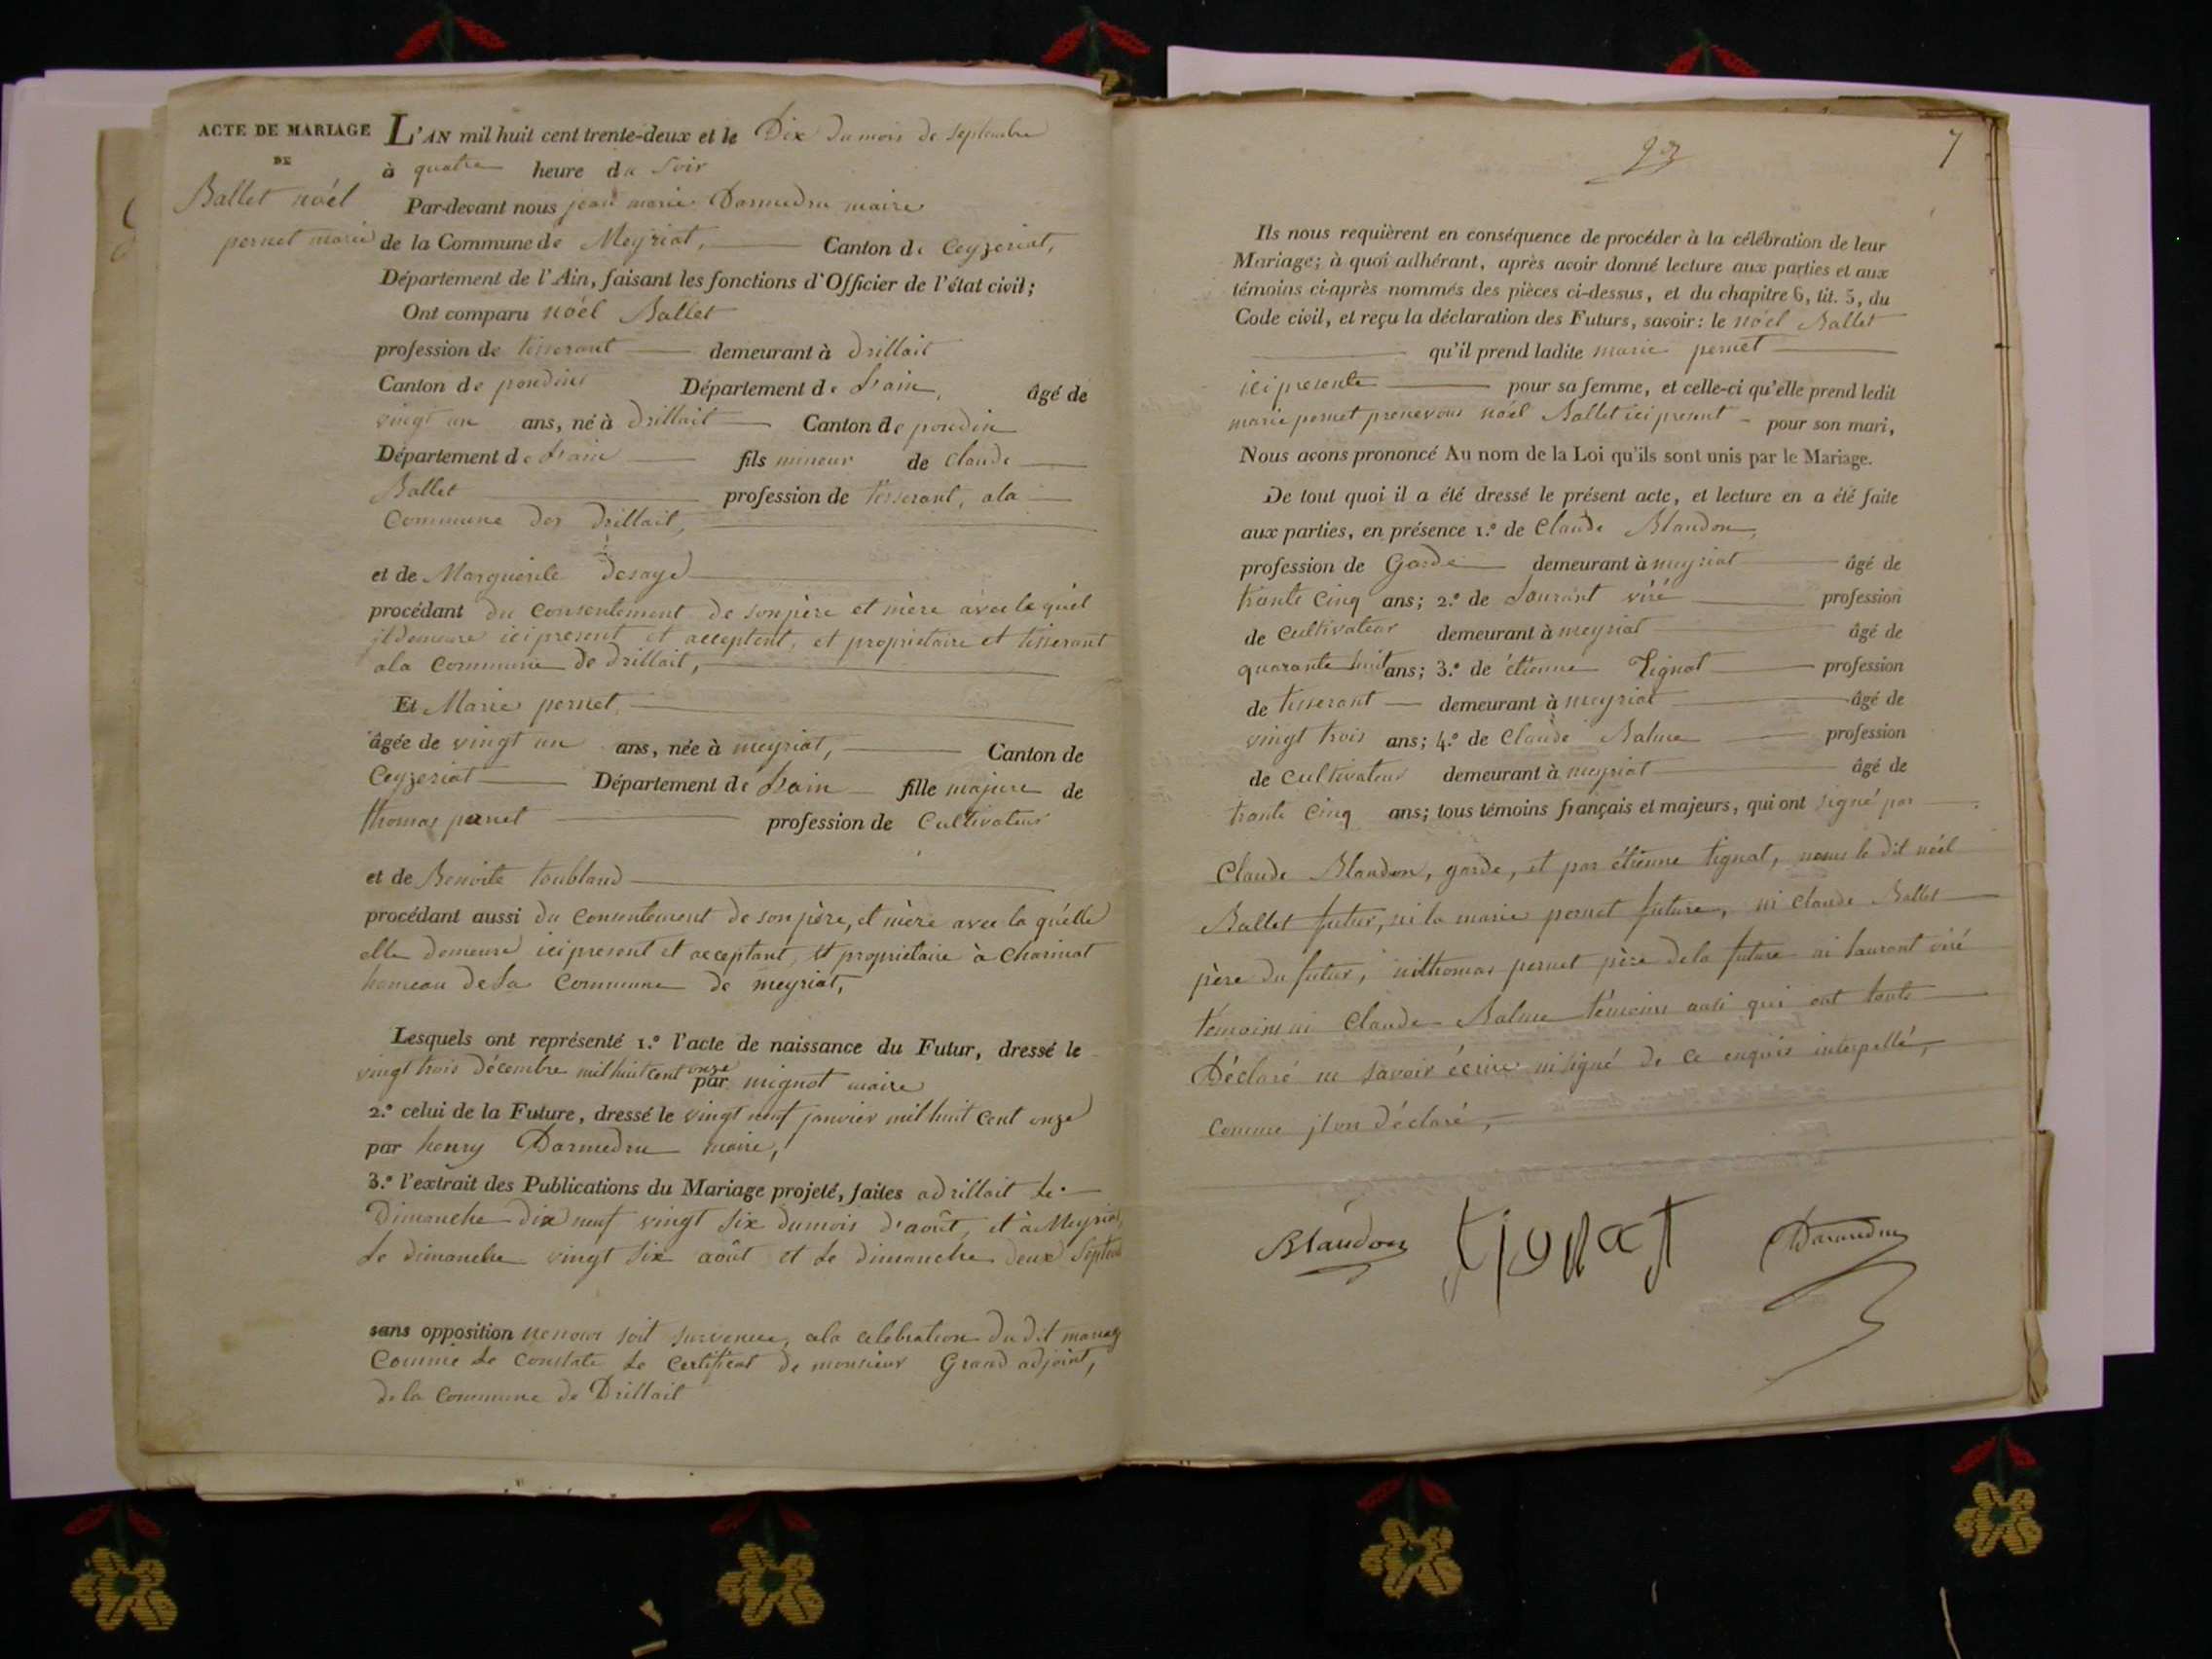 ACTE DE MARIAGE
DE
Ballet noél
pernet marie
L'AN mil huit cent trente-deux et le Dix du mois de septembre
à quatre heure du soir
Par-devant nous jean marie Darmedru maire
de la Commune de Meyriat, Canton de Ceyzeriat,
Département de l'Ain, faisant les fonctions d'Officier de l'état civil;
Ont comparu noél Ballet
profession de tisserant demeurant à drillait
Canton de pondins Département de L'ain, âgé de
vingt un ans, né à Drillait Canton de pondin
Département de L'ain fils mineur de Claude
Ballet profession de tisserant, a la
Commune der Drillait,
et de Marguerite desaye
procédant du Consentement de son père et mère avec le quel
jl demeure ici present et acceptent, et proprietaire et tisserant
a la Commune de Drillait,
Et Marie pernet,
âgée de vingt un ans, née à meyriat, Canton de
Ceyzeriat Département de L'ain fille majure de
thomas pernet profession de Cultivateur
et de Benoite toubland
procédant aussi du Consentement de son père, et mère avec la quélle
elle demeure ici present et acceptant, et proprietaire à Charinat
hameau de La Commune de meyriat,
Lesquels ont représenté 1.º l'acte de naissance du Futur, dressé le
vingt trois décembre mil huit cent onze par mignot maire
2.º celui de la Future, dressé le vingt neuf janvier mil huit Cent onze
par henry Darmedru maire,
3.º l'extrait des Publications du Mariage projeté, faites a drillait Le
Dimanche dix neuf vingt six du mois d'août, et à Meyriat,
Le dimanche vingt six août et Le dimanche deux Septem
sans opposition ne nous soit survenue, a la celebration du dit mariage
Comme Le Constate Le Certificat de monsieur Grand adjoint,
de la Commune de Drillait
23
7
Ils nous requièrent en conséquence de procéder à la célébration de leur
Mariage; à quoi adhérant, après avoir donné lecture aux parties et aux
témoins ci-après nommés des pièces ci-dessus, et du chapitre 6, tit. 5, du
Code civil, et reçu la déclaration des Futurs, savoir: le noél Ballet
qu'il prend ladite marie pernet
ici presente pour sa femme, et celle-ci qu'elle prend ledit
marie pernet prenevous noél Ballet ici present pour son mari,
Nous avons prononcé Au nom de la Loi qu'ils sont unis par le Mariage.
De tout quoi il a été dressé le présent acte, et lecture en a été faite
aux parties, en présence 1.º de Claude Blandon,
profession de Garde demeurant à meyriat âgé de
trante Cinq ans; 2.º de Laurant viré profession
de Cultivateur demeurant à meyriat âgé de
quarante huit ans; 3.º de étienne Tignat profession
de tisserant demeurant à meyriat âgé de
vingt trois ans; 4.º de Claude Balme profession
de Cultivateur demeurant à meyriat âgé de
trante Cinq ans; tous témoins français et majeurs, qui ont signé par
Claude Blandon, garde, et par étienne tignat, le dit noél
Ballet futur, ni la marie pernet future, ni Claude Ballet
père du futur, ni thomas pernet père de la future ni Laurant viré
témoins ni Claude Balme témoins qui ont touts
Déclaré ne savoir écrire ni signé de ce enquis interpellé,
Comme jlon déclaré,
Blandon tignat Darmedru